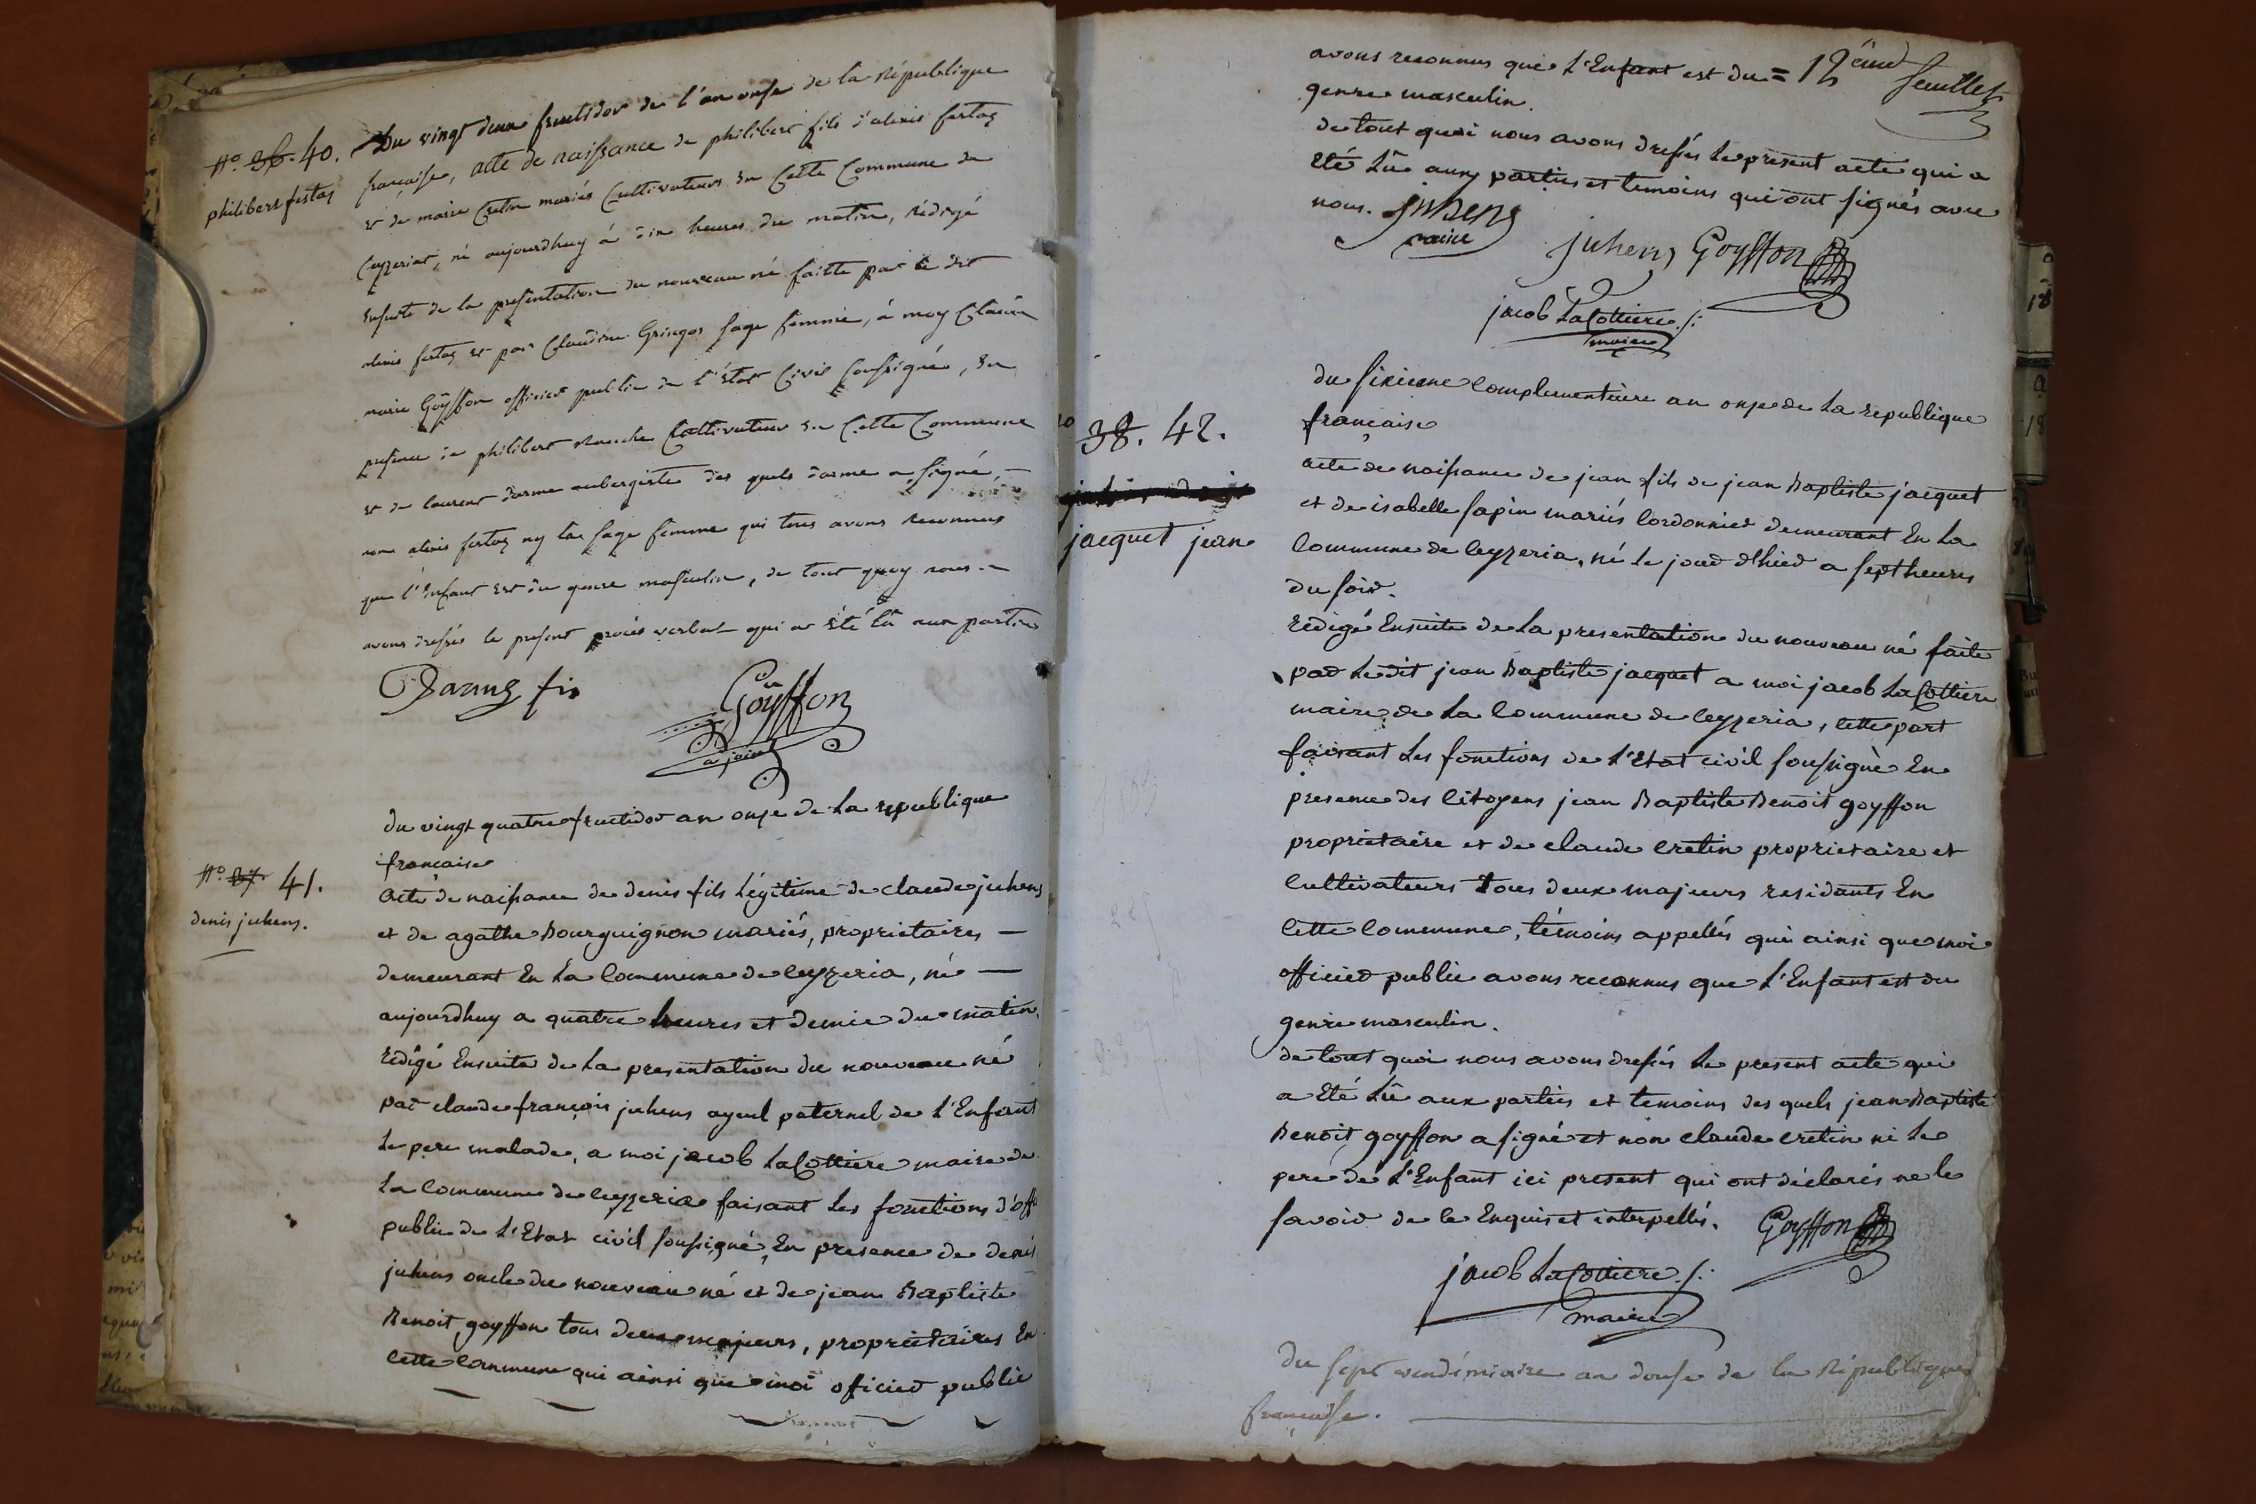 N.o 36. 40.
philibert festaz
Du vingt deux fructidor de l'an onse de la République
française, acte de naissance de philibert fils d'alexis festaz
et de marie Cretin mariés Cultivateurs en Cette Commune de
Ceyzeriat, né aujourdhuy à dix heures du matin, rédigé
ensuite de la présentation du nouveau né faitte par le dit
alexis festaz et par Claudine Gringoz sage femme, à moy Claude
marie Goÿffon officier public de l'état Civil soussigné, en
présence de philibert Cultivateur en Cette Commune
et de laurent darme aubergiste des quels darme a signé,
non alexis festaz ny la sage femme qui tous avons reconnus
que l'enfant est du genre masculin, de tout quoy nous
avons dressés le présent procès verbal qui a été lû aux parties
Darme fis
Goÿffon
ajoint
N.o 37. 41.
denis juhens.
du vingt quatre fructidor an onze de la republique
française
acte de naissance de denis fils légitime de claude juhens
et de agathe Bourguignon mariés, proprietaires
demeurant en la Commune de ceyzeria, né
aujourdhuy a quatre heures et demie du matin,
rédigé Ensuite de la presentation du nouveau né
par claude françois juhens ayeul paternel de l'Enfant
le pere malade, a moi jacob laCottiere maire de
la commune de ceyzeria faisant les fonctions d'off
public de l'Etat civil soussigné, En presence de denis
juhens oncle du nouveau né et de jean Baptiste
Benoit goyffon tous deux majeurs, proprietaires En
cette commune qui ainsi que moi officier public
12 eme feuillet
avons reconnus que l'Enfant est du =
genre masculin.
de tout quoi nous avons dressés le présent acte qui a
été lû aux parties et temoins qui ont signés avec
nous.
juhens
juhens Goyffon
jacob laCottiere
maire
38. 42.
jacquet jean
du sixieme complementaire an onze de la republique
française
acte de naissance de jean fils de jean Baptiste jacquet
et de isabelle sapin mariés Cordonnier demeurant En la
Commune de Ceyzeria, né le jour d'hier a sept heures
du soir.
rédigé Ensuite de la presentation du nouveau né faite
par le dit jean Baptiste jacquet a moi jacob laCottiere
maire de la Commune de Ceyzeria, cette part
faisant les fonctions de l'Etat civil soussigné En
presence des Citoyens jean Baptiste Benoit goyffon
propriétaire et de claude cretin proprietaire et
Cultivateurs tous deux majeurs residants En
Cette Commune, témoins appellés qui ainsi que moi
officier public avons reconnus que l'Enfant est du
genre masculin.
de tout quoi nous avons dressés le present acte qui
a été lû aux parties et temoins des quels jean Baptiste
Benoit goyffon a signé et non claude cretin ni le
pere de l'Enfant ici present qui ont déclarés ne le
savoir de ce Enquis et interpellés.
Goyffon
jacob laCottiere
maire
Du sept vendémiaire an douse de la République
française.